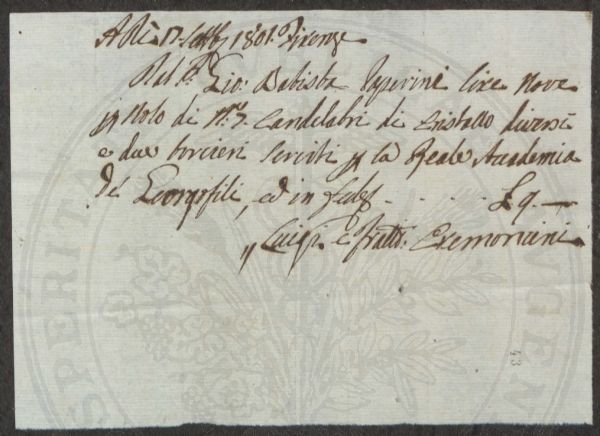 A Di 17. Sett.e 1801. Firenze
Dal S.r Gio: Batista Paperini lire Nove
p Nolo di N.o 7. Candelabri di Cristallo diversi
e due torcieri Serviti p la Reale Accademia
de' Georgofili, ed in fede . . . . . . £ 9. —
Luigi e Fratt.i Cremoncini
43
SPERITA